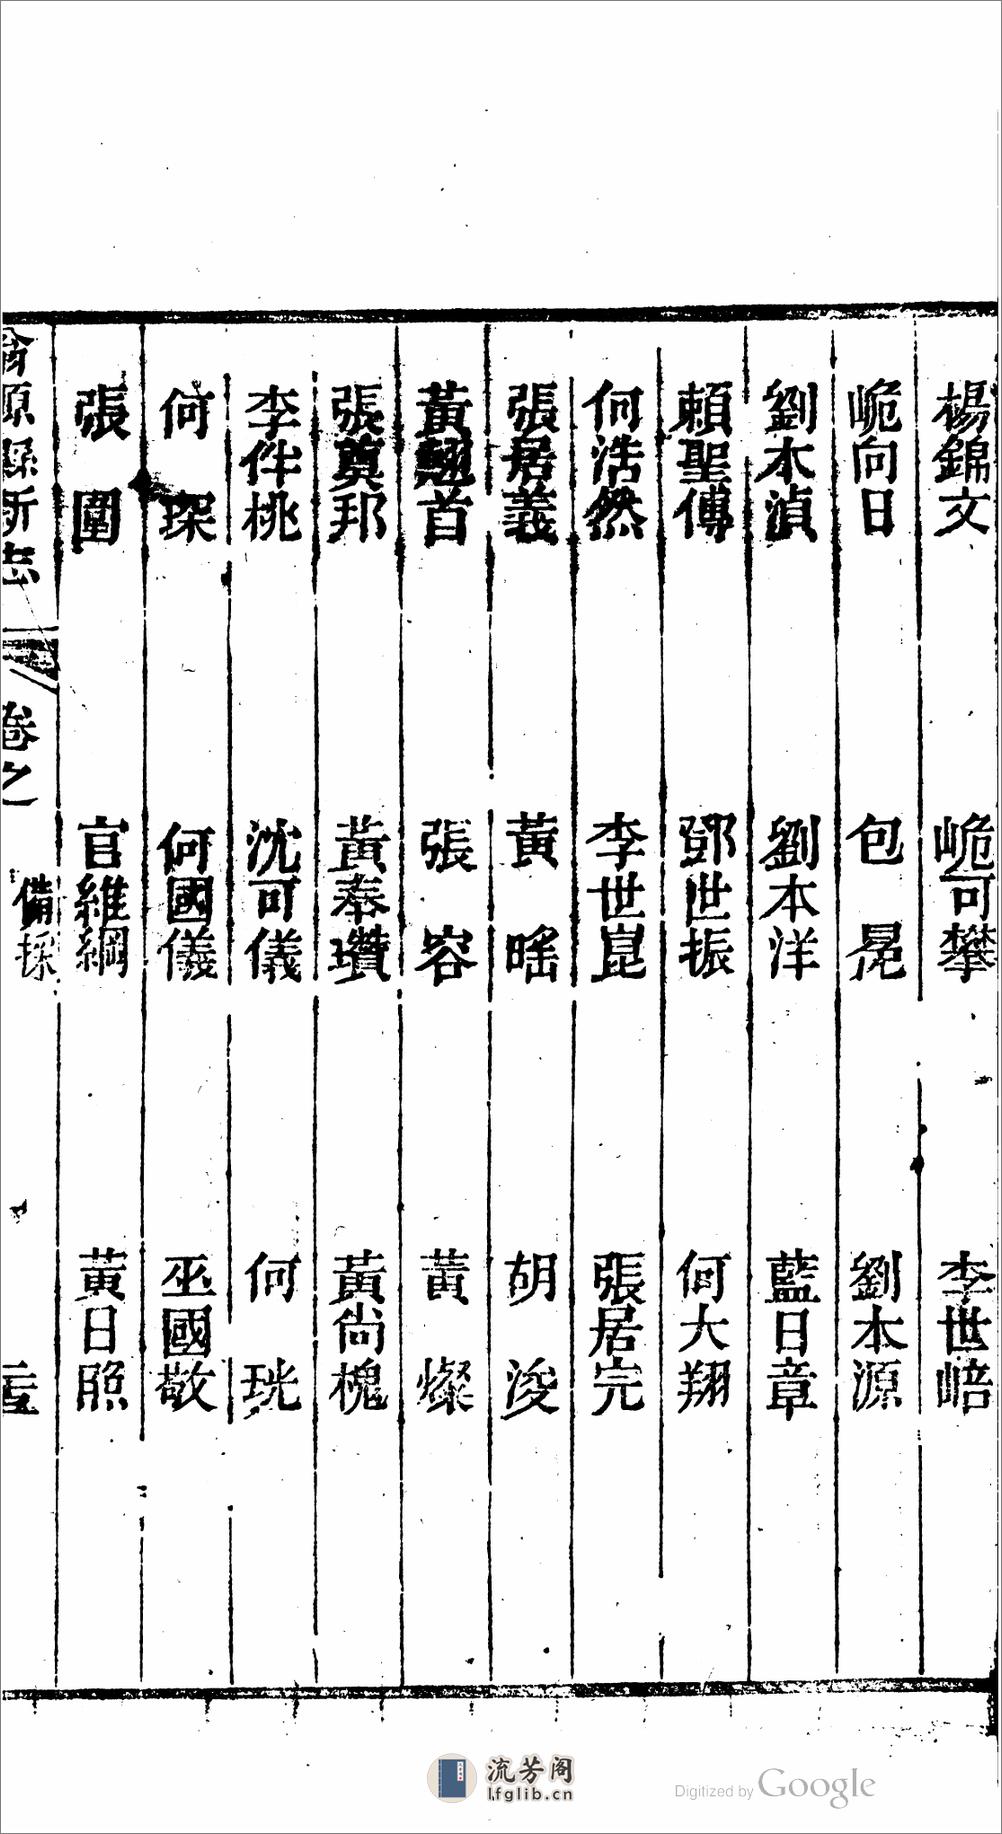 楊錦文 峗可攀 李世㟝
峗向日 包晃 劉本源
劉本湞 劉本洋 藍日章
賴聖傅 鄧世振 何大翔
何浩然 李世崑 張居完
張居義 黃暚 胡浚
黃翹首 張容 黃燦
張奠邦 黃奉瓚 黃尚槐
李仵桃 沈可儀 何珖
何琛 何國儀 巫國敬
張圍 官維綱 黃日照
翁源縣新志 卷之 備採
流芳阁
lfglib.cn
Digitized by Google